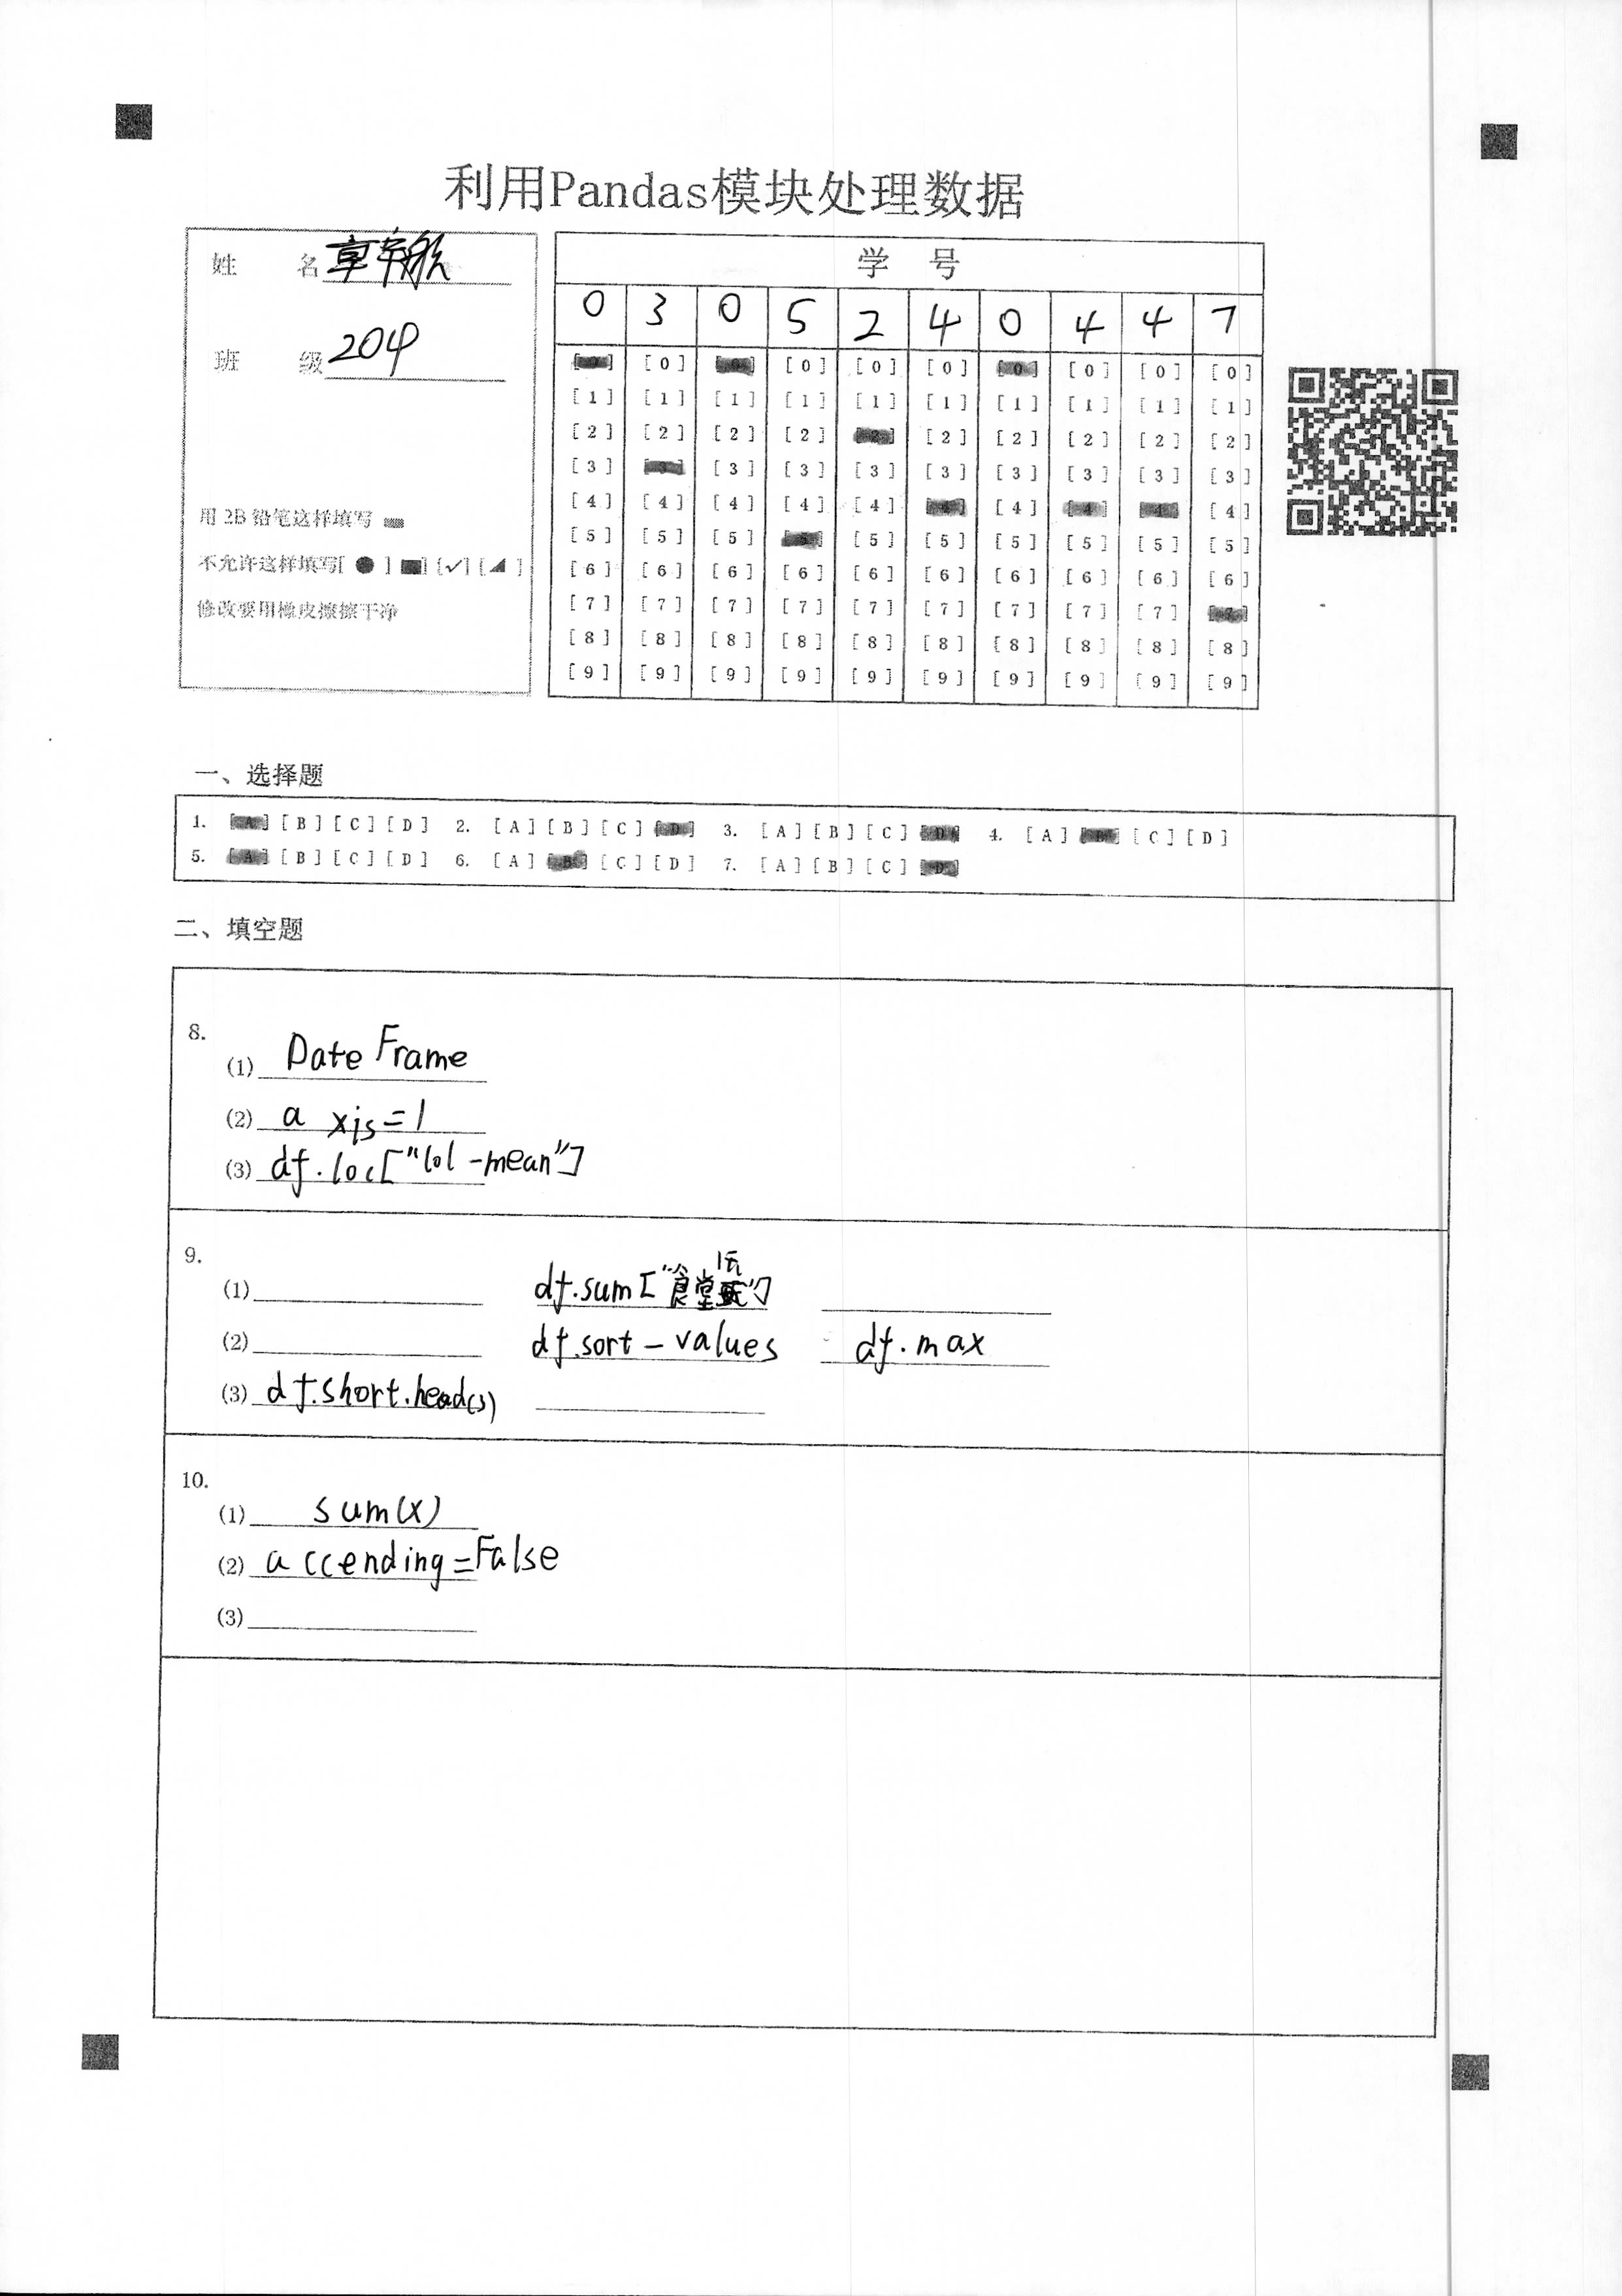 利用Pandas模块处理数据
姓 名 章
班 级 204
用 2B 铅笔这样填写
不允许这样填写[ ● ] ■] [✓] [◢ ]
修改要用橡皮擦擦干净
学 号
0 3 0 5 2 4 0 4 4 7
[0] [0] [0] [0] [0] [0] [0] [0] [0] [0]
[1] [1] [1] [1] [1] [1] [1] [1] [1] [1]
[2] [2] [2] [2] [2] [2] [2] [2] [2] [2]
[3] [3] [3] [3] [3] [3] [3] [3] [3] [3]
[4] [4] [4] [4] [4] [4] [4] [4] [4] [4]
[5] [5] [5] [5] [5] [5] [5] [5] [5] [5]
[6] [6] [6] [6] [6] [6] [6] [6] [6] [6]
[7] [7] [7] [7] [7] [7] [7] [7] [7] [7]
[8] [8] [8] [8] [8] [8] [8] [8] [8] [8]
[9] [9] [9] [9] [9] [9] [9] [9] [9] [9]
一、选择题
1. [A] [B] [C] [D] 2. [A] [B] [C] [D] 3. [A] [B] [C] [D] 4. [A] [B] [C] [D]
5. [A] [B] [C] [D] 6. [A] [B] [C] [D] 7. [A] [B] [C] [D]
二、填空题
8.
(1) Date Frame
(2) a xis=1
(3) df.loc["lol-mean"]
9.
(1) df.sum["食堂"]
(2) df.sort-values df.max
(3) df.short.head(3)
10.
(1) sum(x)
(2) accending=False
(3)